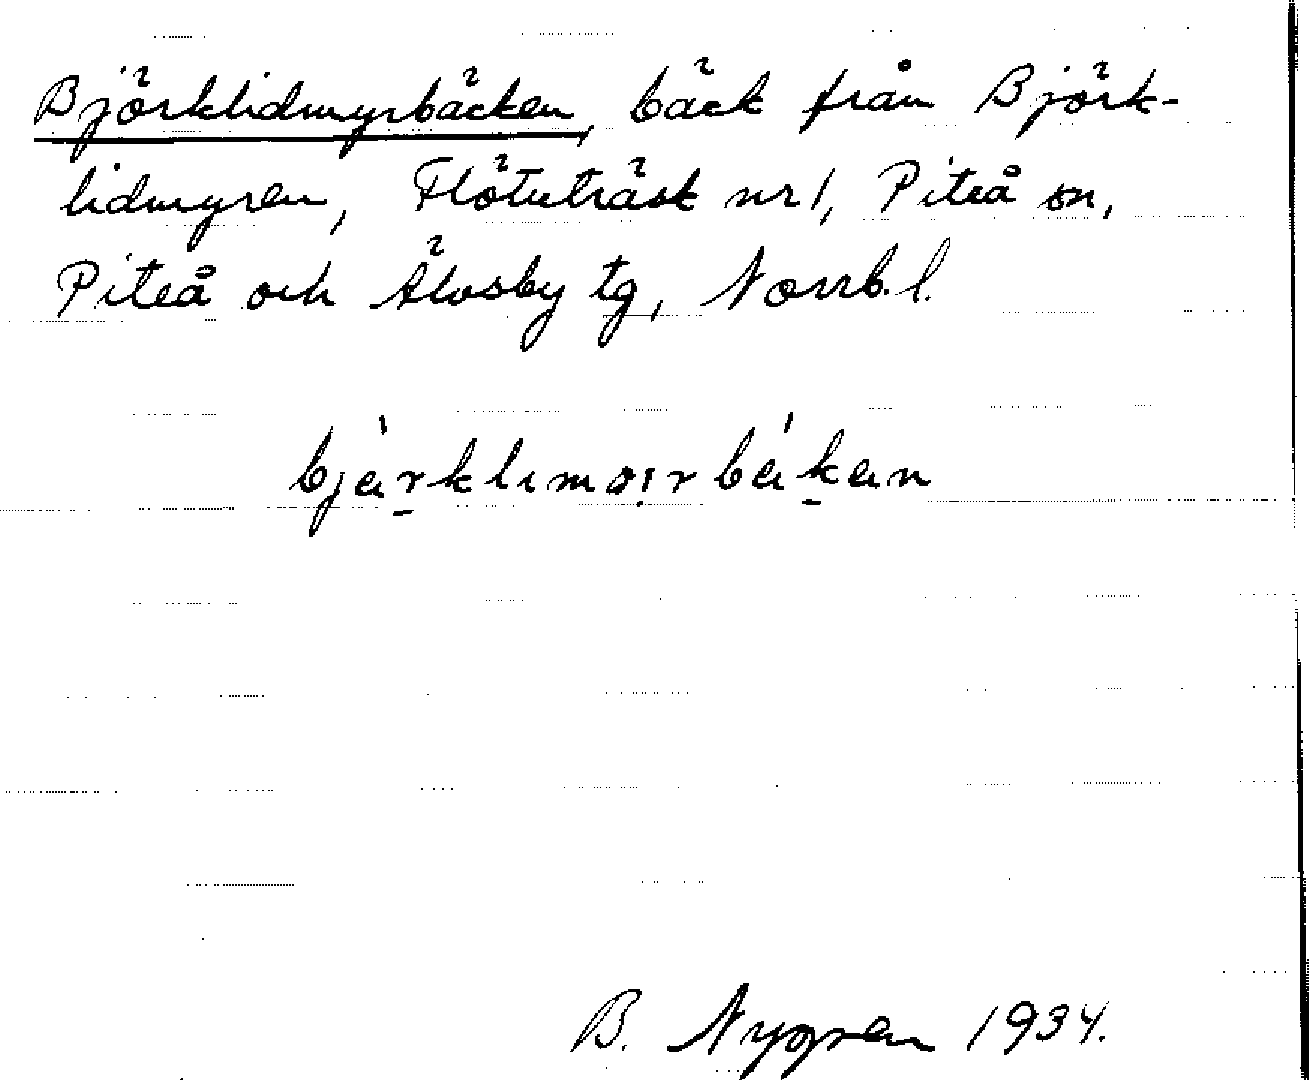 Björklidmyrbäcken, bäck från Björk-
lidmyren, Flötuträsk nr 1, Piteå sn,
Piteå och Älvsby tg, Norrb. l.
B. Nygren 1934.